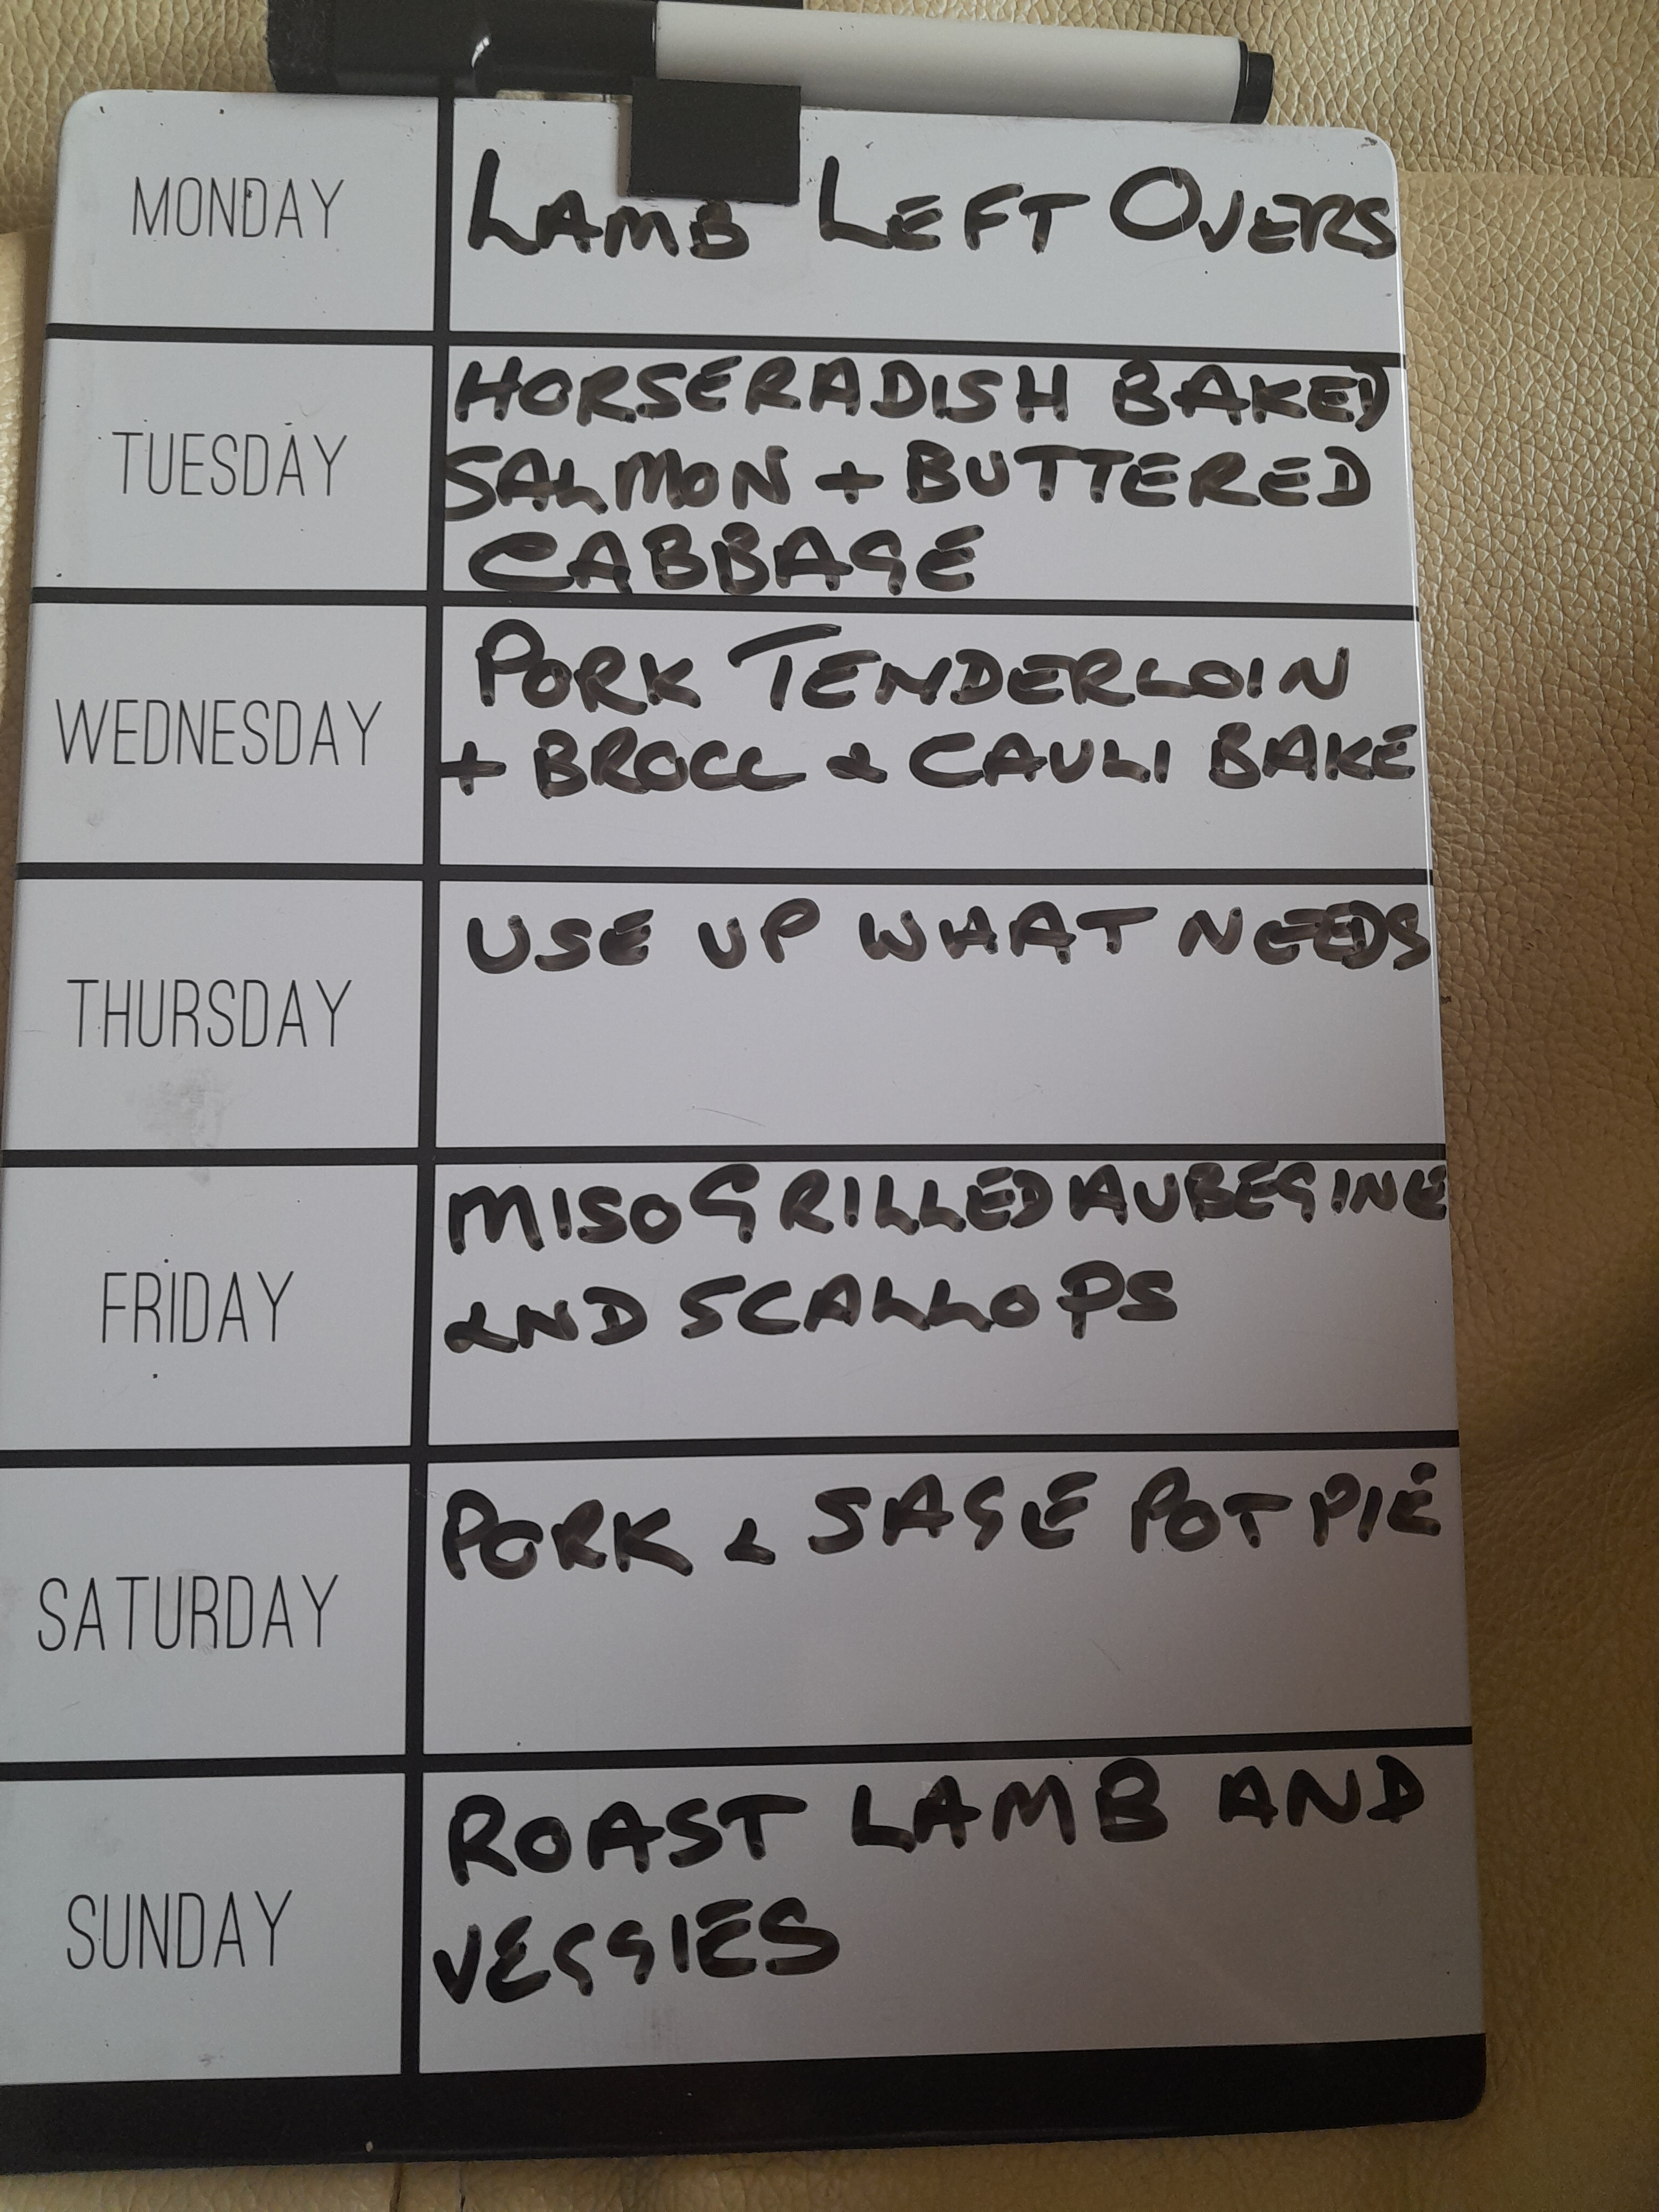 MONDAY
LAMB LEFT OVERS
TUESDAY
HORSERADISH BAKED
SALMON + BUTTERED
CABBAGE
WEDNESDAY
PORK TENDERLOIN
+ BROCC & CAULI BAKE
THURSDAY
USE UP WHAT NEEDS
FRIDAY
MISO GRILLED AUBEGINE
AND SCALLOPS
SATURDAY
PORK & SAGE POT PIE
SUNDAY
ROAST LAMB AND
VEGGIES